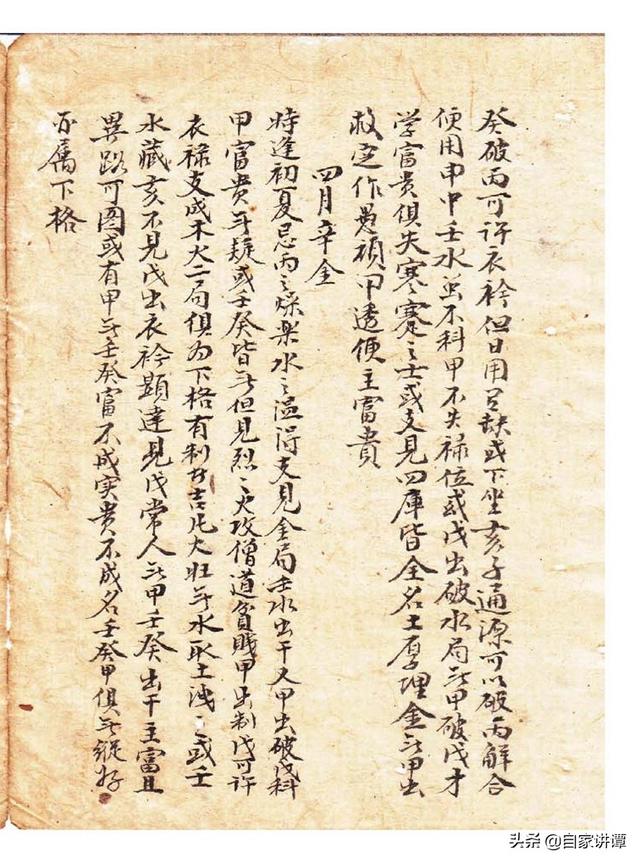 癸破丙可许衣衿但日用呂缺或下坐亥子通源可以破丙解合
便用申中壬水虽不科甲不失禄位或戊出破水局無甲破戊才
学富貴俱失寒蹇之士或支見四庫皆全名土厚埋金無甲出
救定作愚頑甲透便主富貴
四月辛金
時逢初夏忌丙之燥樂水之溫得支見金局壬水出干又甲出破戊科
甲富貴無疑或壬癸皆無但見烈之火攻僧道貧賤甲出制戊可許
衣禄支成木火二局俱为下格有制方吉凡火旺無水取土洩之或壬
水藏亥不見戊出衣衿顯達見戊常人無甲壬癸出干主富且
異路可圖或有甲無壬癸富不成实貴不成名壬癸甲俱無縱好
亦屬下格
头条 @自家讲谭